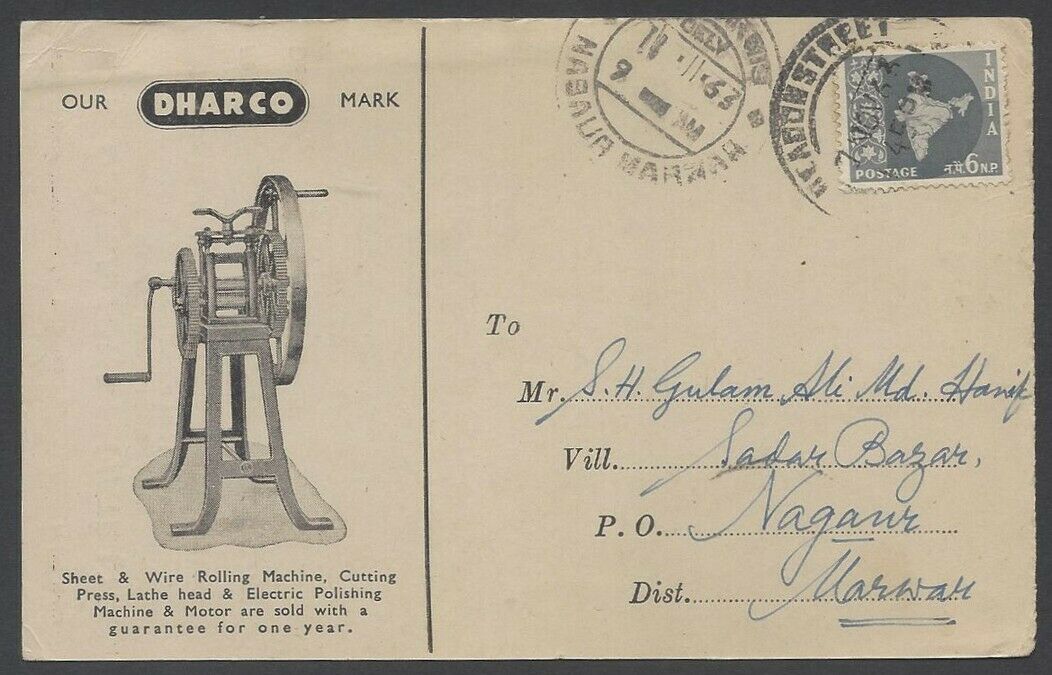 OUR DHARCO MARK
Sheet & Wire Rolling Machine, Cutting
Press, Lathe head & Electric Polishing
Machine & Motor are sold with a
guarantee for one year.
NAGAUR MARWAR
BEADON STREET
INDIA
POSTAGE न.पै. 6 N.P.
To
Mr. S. H. Gulam Ali Md. Hanif
Vill. Sadar Bazar,
P. O. Nagaur
Dist. Marwar